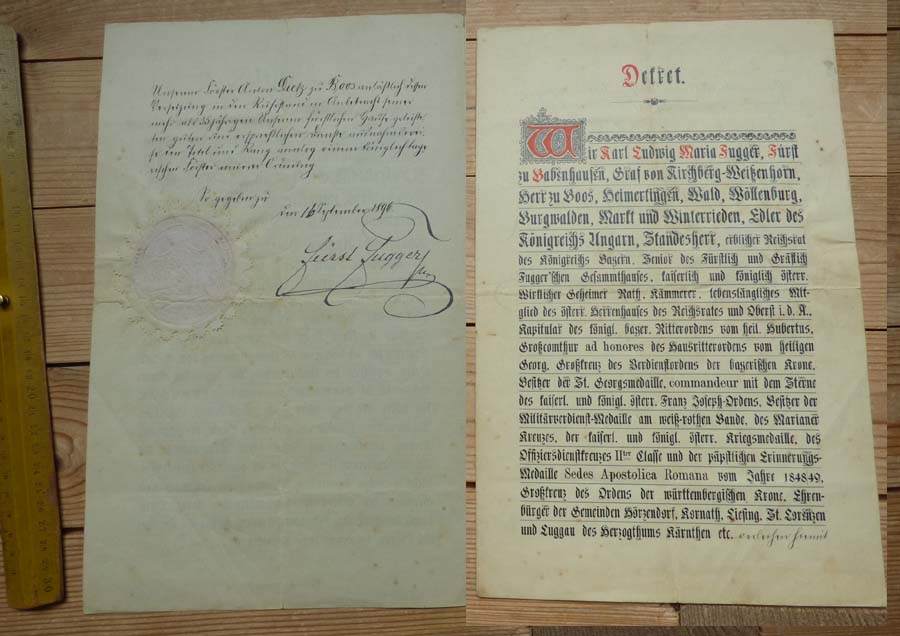 Unserm Förster Anton Dietz zu Boos anläßlich dessen
Versetzung in den Ruhestand in Anbetracht seiner
mehr als 55jährigen Unserm fürstlichen Hause geleiste-
ten guten und ersprießlichen Dienste
Titel und Rang analog einem Königlich baye-
rischen Förster
So gegeben zu
den 16 September 189
Fürst Fugger
Dekret.
Wir Karl Ludwig Maria Fugger, Fürst
zu Babenhausen, Graf von Kirchberg-Weißenhorn,
Herr zu Boos, Heimertingen, Wald, Wöllenburg,
Burgwalden, Markt und Winterrieden, Edler des
Königreichs Ungarn, Standesherr, erblicher Reichsrat
des Königreichs Bayern, Senior des Fürstlich und Gräflich
Fugger'schen Gesammthauses, kaiserlich und königlich österr.
Wirklicher Geheimer Rath, Kämmerer, lebenslängliches Mit-
glied des österr. Herrenhauses des Reichsrates und Oberst i. d. A.,
Kapitular des königl. bayer. Ritterordens vom heil. Hubertus,
Großcomthur ad honores des Hausritterordens vom heiligen
Georg, Großkreuz des Verdienstordens der bayerischen Krone,
Besitzer der St. Georgsmedaille, commandeur mit dem Sterne
des kaiserl. und königl. österr. Franz Joseph-Ordens, Besitzer der
Militärverdienst-Medaille am weiß-rothen Bande, des Marianer
Kreuzes, der kaiserl. und königl. österr. Kriegsmedaille, des
Offiziersdienstkreuzes IIter Classe und der päpstlichen Erinnerungs-
Medaille Sedes Apostolica Romana vom Jahre 1848/49,
Großkreuz des Ordens der württembergischen Krone, Ehren-
bürger der Gemeinden Hörzendorf, Kornath, Liesing, St. Lorenzen
und Luggau des Herzogthums Kärnthen etc. verleihen hiermit